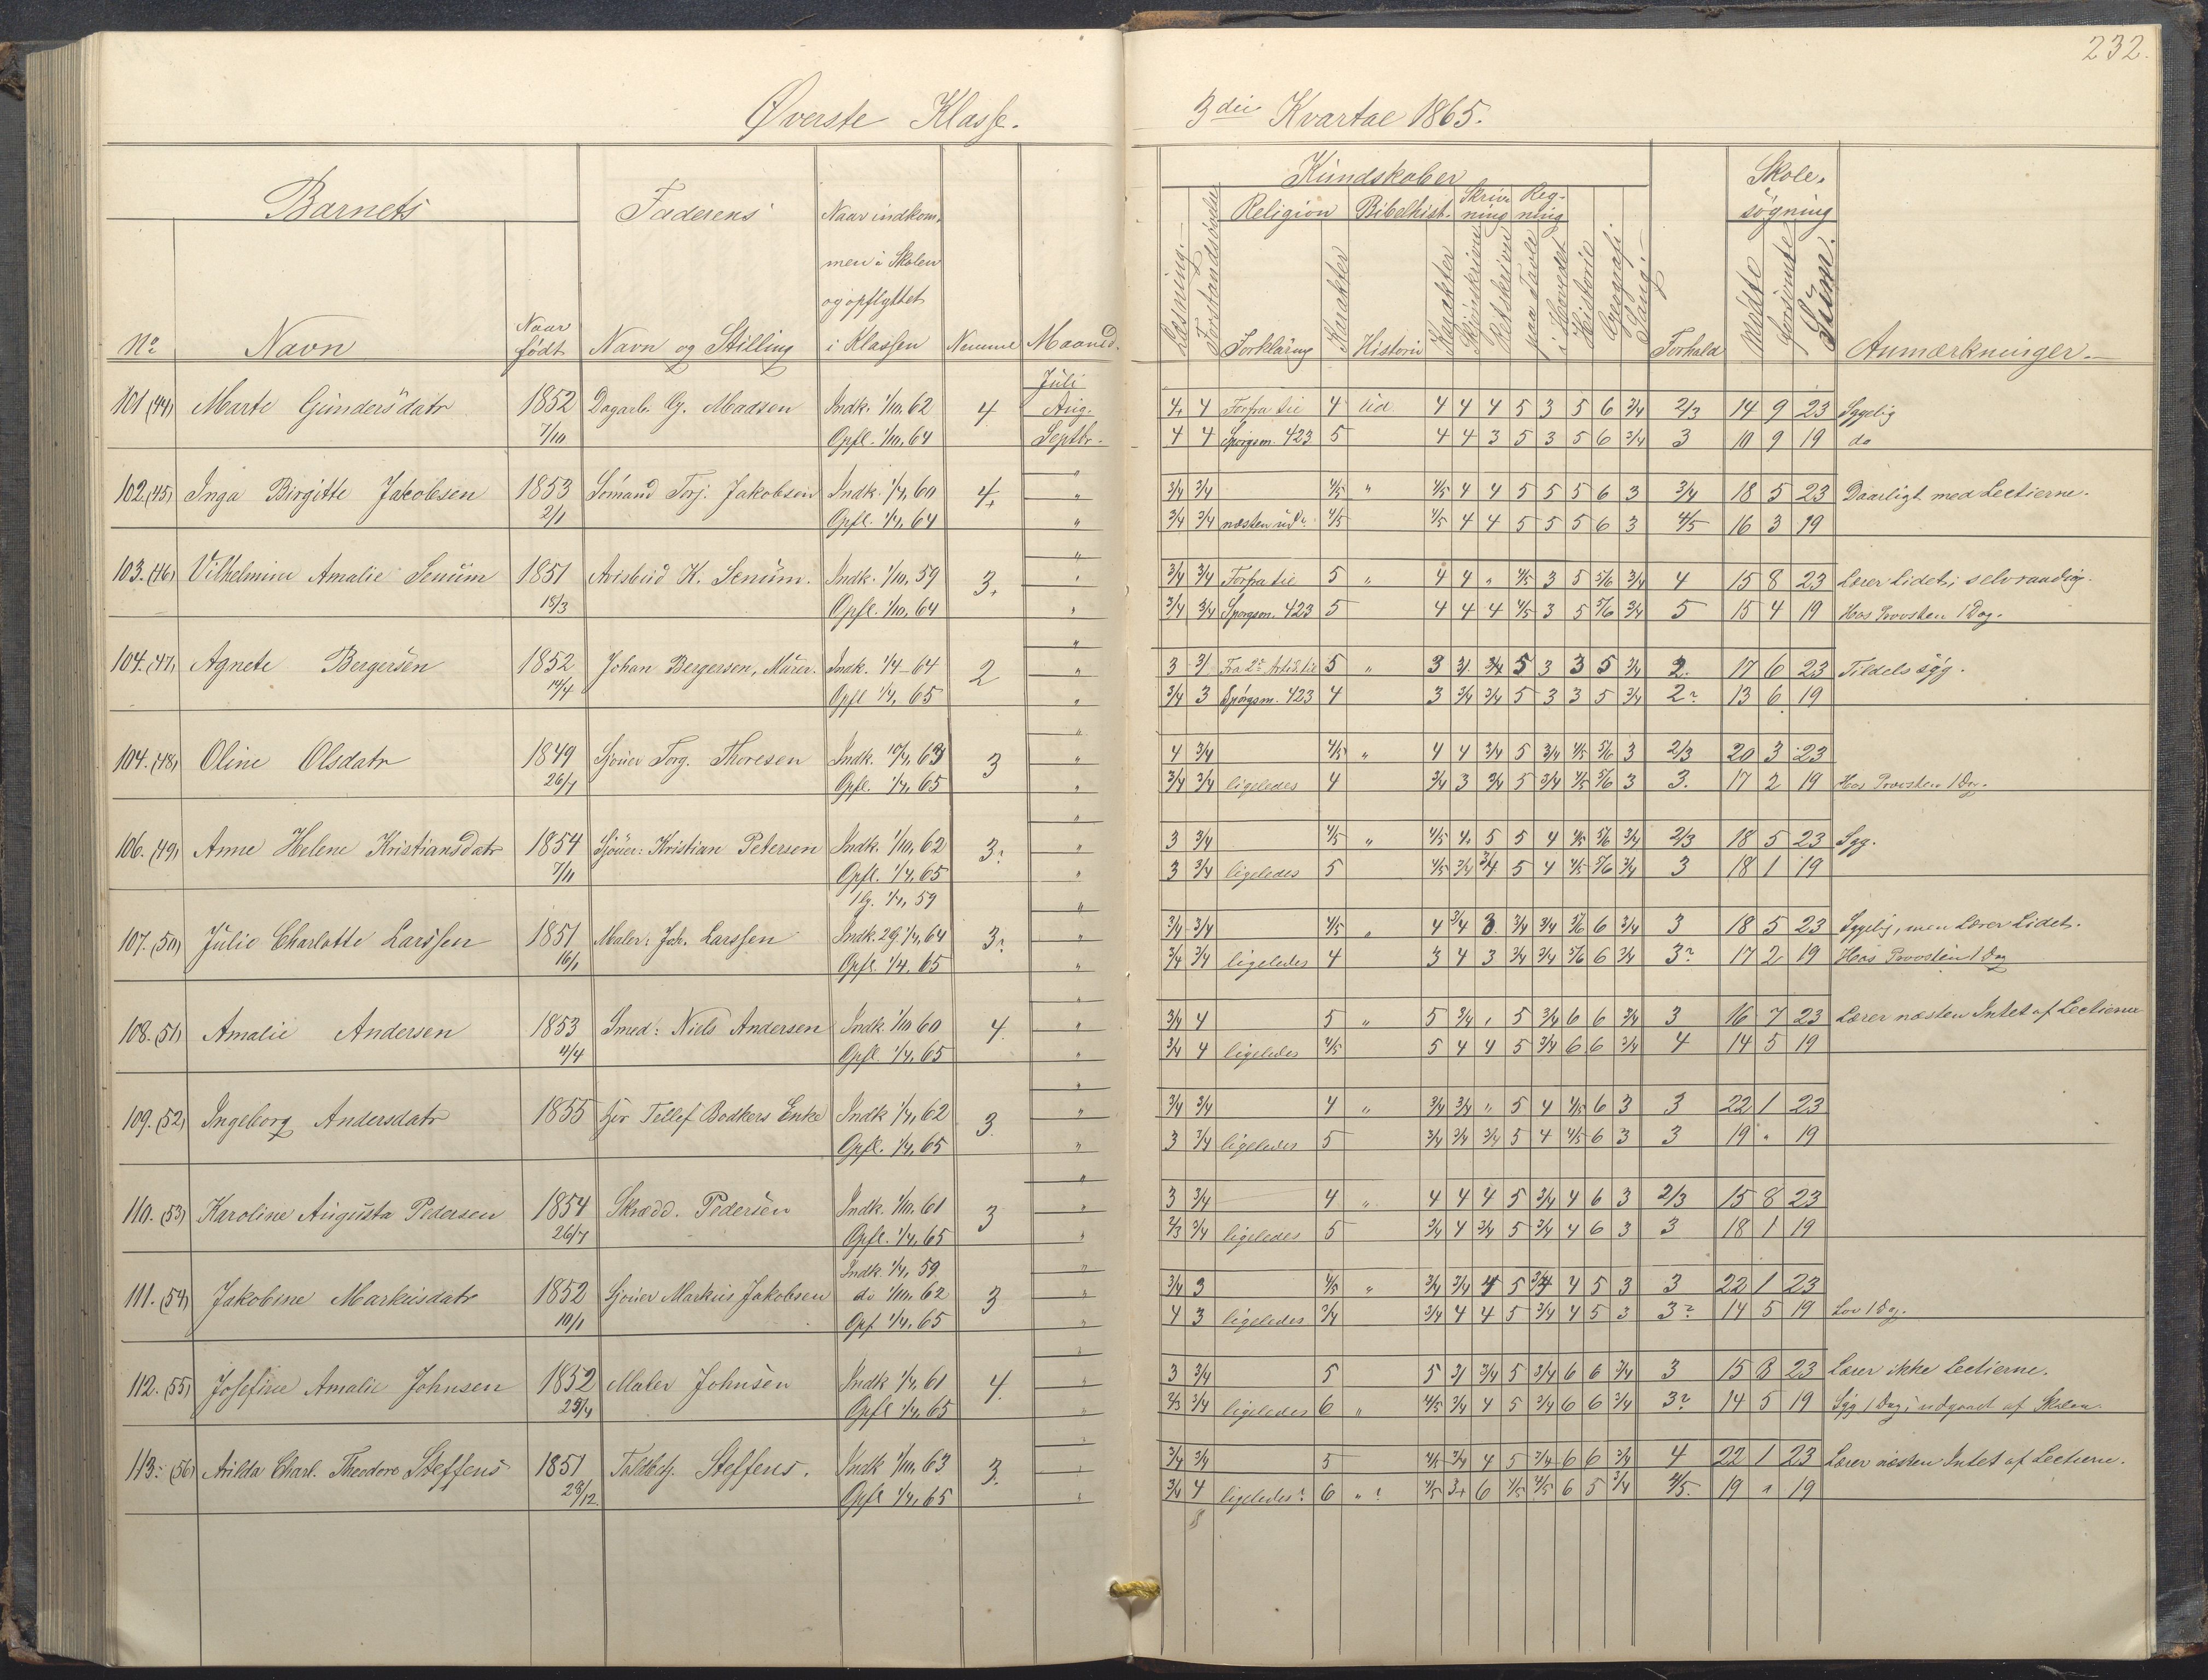 232.
Øverste Klasse. 3die Kvartal 1865.
Barnets Faderens Naar indkom- Kundskaber Skole-
men i Skolen Religion Bibelhist. Skriv- Reg- søgning
og opflyttet ning ning
No. Navn Naar født Navn og Stilling i Klassen Nemme Maaned. Læsning. Forstandsøvelse Forklaring Karakter Historie Karakter Skjønskriven Retskriven paa Tavle i Hovedet Historie Geografi Sang. Forhold Mødte forsømte Sum. Anmærkninger.
Juli
101 (44) Marte Gundersdatr 1852 Dagarb. G. Madsen Indk. 1/10, 62 4 Aug. 4 4 Forfra til 4 ud 4 4 4 5 3 5 6 3/4 2/3 14 9 23 Sygelig
7/10 Opfl. 1/10, 64 Septbr. 4 4 Spørgsm. 423 5 4 4 3 5 3 5 6 3/4 3 10 9 19 do
102. (45) Inga Birgitte Jakobsen 1853 Sømand Torj. Jakobsen Indk. 1/4, 60 4 " 3/4 3/4 4/5 " 4/5 4 4 5 5 5 6 3 3/4 18 5 23 Daarligt med Lectierne.
2/1 Opfl. 1/4, 64 " 3/4 3/4 næsten ud 4/5 4/5 4 4 5 5 5 6 3 4/5 16 3 19
103. (46) Vilhelmine Amalie Senum 1851 Avisbud K. Senum. Indk. 1/10, 59 3 " 3/4 3/4 Forfra til 5 " 4 4 " 4/5 3 5 5/6 3/4 4 15 8 23 Lærer Lidet; selvraadig.
15/3 Opfl. 1/10, 64 " 3/4 3/4 Spørgsm. 423 5 4 4 4 4/5 3 5 5/6 3/4 5 15 4 19 Hos Provsten 1 Dag.
104. (47) Agnete Bergersen 1852 Johan Bergersen, Murer. Indk. 1/4 - 64 2 " 3 5 " 3 3/4 5 3 3 5 3/4 2. 17 6 23 Tildels syg.
14/4 Opfl 1/4, 65 " 3/4 3 Spørgsm. 423 4 3 3/4 3/4 5 3 3 5 3/4 2? 13 6 19
104. (48) Oline Olsdatr 1849 Sjøuer Torg. Thoresen Indk. 10/4, 63 3 " 4 3/4 4/5 " 4 4 3/4 5 3/4 4/5 5/6 3 2/3 20 3 23
26/7 Opfl. 1/4, 65 " 3/4 3/4 ligeledes 4 3/4 3 3/4 5 3/4 4/5 5/6 3 3. 17 2 19 Hos Provsten 1 Dag.
106. (49) Anne Helene Kristiansdatr 1854 Sjøuer: Kristian Petersen Indk. 1/10, 62 3? " 3 3/4 4/5 " 4/5 4 5 5 4 4/5 5/6 3/4 2/3 18 5 23 Syg.
7/11 Opfl. 1/4, 65 " 3 3/4 ligeledes 5 4/5 3/4 3/4 5 4 4/5 5/6 3/4 3 18 1 19
1/4, 59
107. (50) Julie Charlotte Larssen 1851 Maler: Joh. Larssen Indk. 2 g. 1/4, 64 3? " 3/4 3/4 4/5 " 4 3/4 3 3/4 3/4 5/6 6 3/4 3 18 5 23 Sygelig, men Lærer Lidet.
16/1 Opfl. 1/4. 65 " 3/4 3/4 ligeledes 4 3 4 3 3/4 3/4 5/6 6 3/4 3? 17 2 19 Hos Provsten 1 Dag
108. (51) Amalie Andersen 1853 Smed: Niels Andersen Indk 1/10 60 4 " 3/4 4 5 " 5 3/4 " 5 3/4 6 6 3/4 3 16 7 23 Lærer næsten Intet af Lectierne
4/4 Opfl 1/4, 65 " 3/4 4 ligeledes 4/5 5 4 4 5 3/4 6 6 3/4 4 14 5 19
109. (52) Ingeborg Andersdatr 1855 Tellef Bødkers Enke Indk 1/4, 62 3. " 3/4 3/4 4 " 3/4 3/4 " 5 4 4/5 6 3 3 22 1 23
Opfl. 1/4, 65 " 3 3/4 ligeledes 5 3/4 3/4 3/4 5 4 4/5 6 3 3 19 " 19
110. (53) Karoline Augusta Pedersen 1854 Skrædd. Pedersen Indk. 1/10. 61 3 " 3 3/4 4 " 4 4 4 5 3/4 4 6 3 2/3 15 8 23
26/7 Opfl. 1/4, 65 " 2/3 3/4 ligeledes 5 3/4 4 3/4 5 3/4 4 6 3 3 18 1 19
Indk. 1/4, 59
111. (54) Jakobine Markusdatr 1852 Sjøuer Markus Jakobsen do 1/10, 62 3 " 3/4 3 4/5 " 3/4 3/4 4 5 3/4 4 5 3 3 22 1 23
10/1 Opf 1/4, 65 " 4 3 ligeledes 3/4 3/4 4 4 5 3/4 4 5 3 3? 14 5 19 Lov 1 Dag.
112. (55) Josefine Amalie Johnsen 1852 Maler Johnsen Indk 1/4, 61 4 " 3 3/4 5 5 3/4 5 3/4 6 6 3/4 3 15 8 23 Lærer ikke Lectierne.
25/4 Opfl 1/4, 65 " 2/3 3/4 ligeledes 6 " 4/5 3/4 4 5 3/4 6 6 3/4 3? 14 5 19 Syg 1 Dag; udgaaet af Skolen.
113. (56) Arilda Charl. Theodore Steffens 1851 Toldbetj. Steffens. Indk 1/10, 63 3. " 3/4 3/4 5 4/5 3/4 4 5 3/4 6 6 3/4 4 22 1 23 Lærer næsten Intet af Lectierne.
28/12. Opfl 1/4, 65 " 3/4 4 ligeledes? 6 " ? 4/5 3+ 6 4/5 4/5 6 5 3/4 4/5. 19 " 19